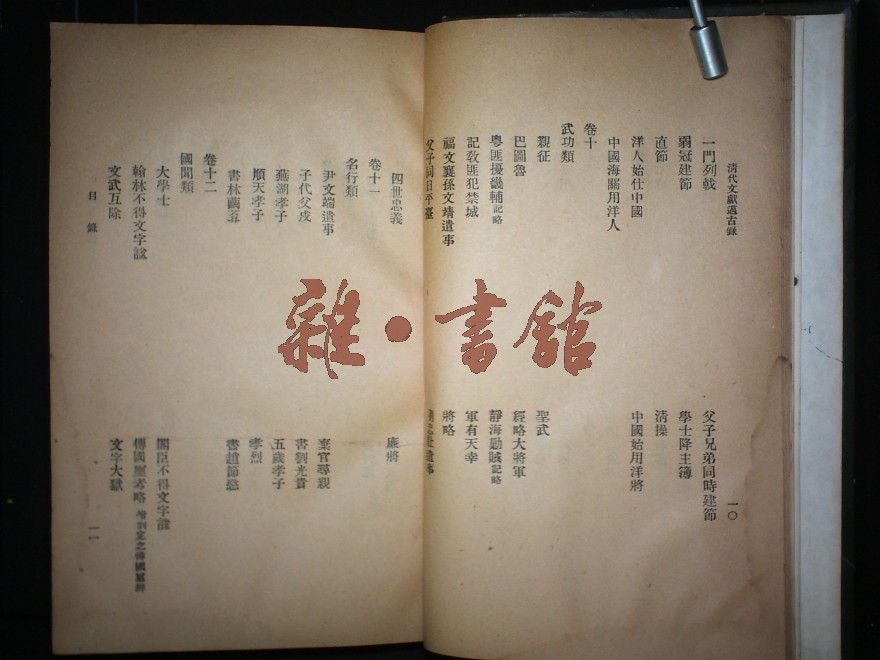 清代文獻邁古錄
一〇
一門列戟
父子兄弟同時建節
弱冠建節
學士降主簿
直節
清操
洋人始仕中國
中國始用洋將
中國海關用洋人
卷十
武功類
親征
聖武
巴圖魯
經略大將軍
粵匪擾畿輔記略
靜海勦賊記略
記敎匪犯禁城
軍有天幸
福文襄孫文靖遺事
將略
父子同日平臺
四世忠義
廉將
卷十一
名行類
尹文端遺事
棄官尋親
子代父戍
書劉光貴
蕪湖孝子
五歲孝子
順天孝子
孝烈
書林繭葊
書趙節愍
卷十二
國聞類
大學士
閣臣不得文字諡
翰林不得文字諡
傳國璽考略
文武互除
文字大獄
目錄
一一
雜·書館